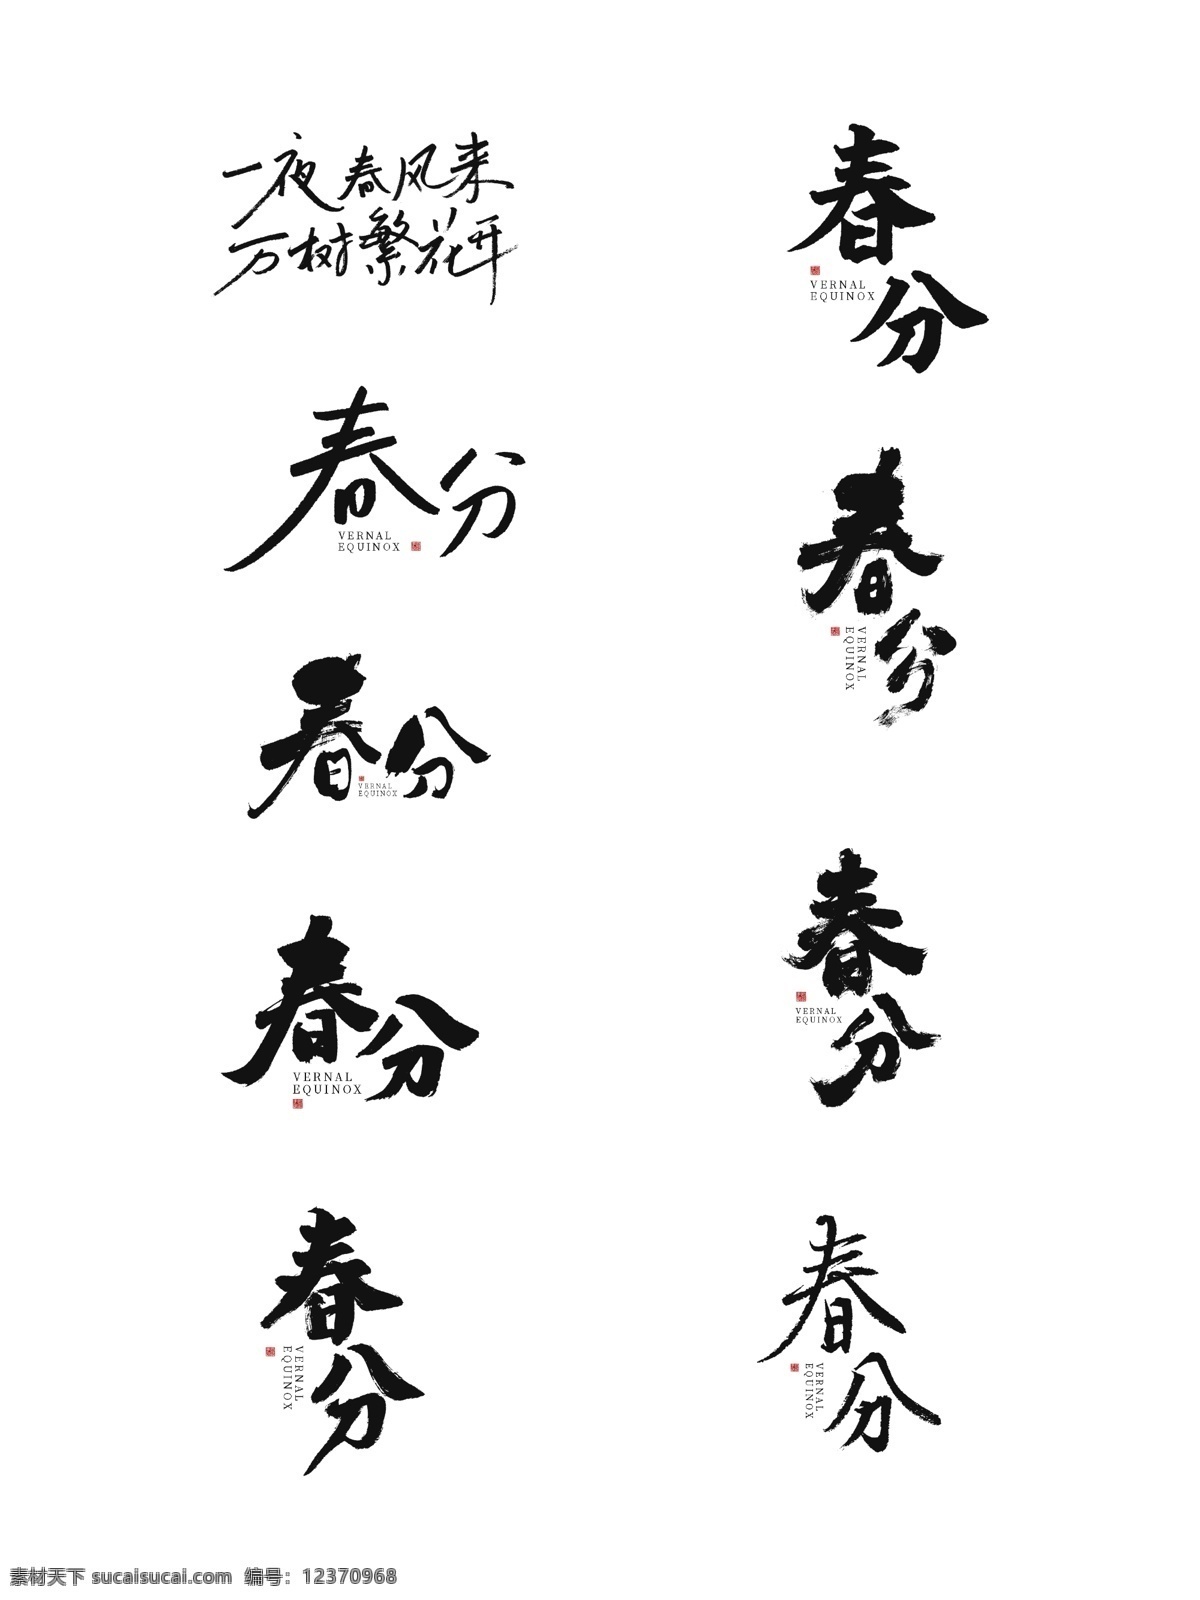 一夜春风来
万树繁花开
春分
VERNAL
EQUINOX
春分
VERNAL
EQUINOX
春分
VERNAL
EQUINOX
春分
VERNAL
EQUINOX
春分
VERNAL
EQUINOX
春分
VERNAL
EQUINOX
春分
VERNAL
EQUINOX
春分
VERNAL
EQUINOX
素材天下 sucaisucai.com 编号：12370968